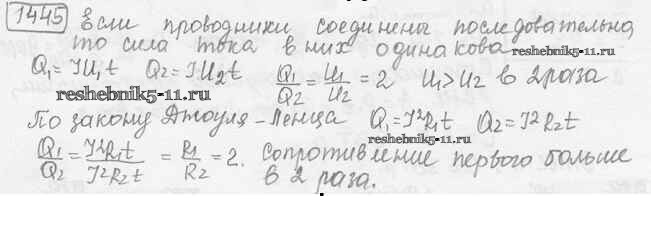 1445 Если проводники соединены последовательно,
то сила тока в них одинакова
reshebnik5-11.ru
Q₁=IU₁t Q₂=IU₂t Q₁/Q₂=U₁/U₂=2 U₁>U₂ в 2 раза
reshebnik5-11.ru
По закону Джоуля-Ленца Q₁=I²R₁t Q₂=I²R₂t
reshebnik5-11.ru
Q₁/Q₂=I²R₁t/I²R₂t=R₁/R₂=2. Сопротивление первого больше
в 2 раза.